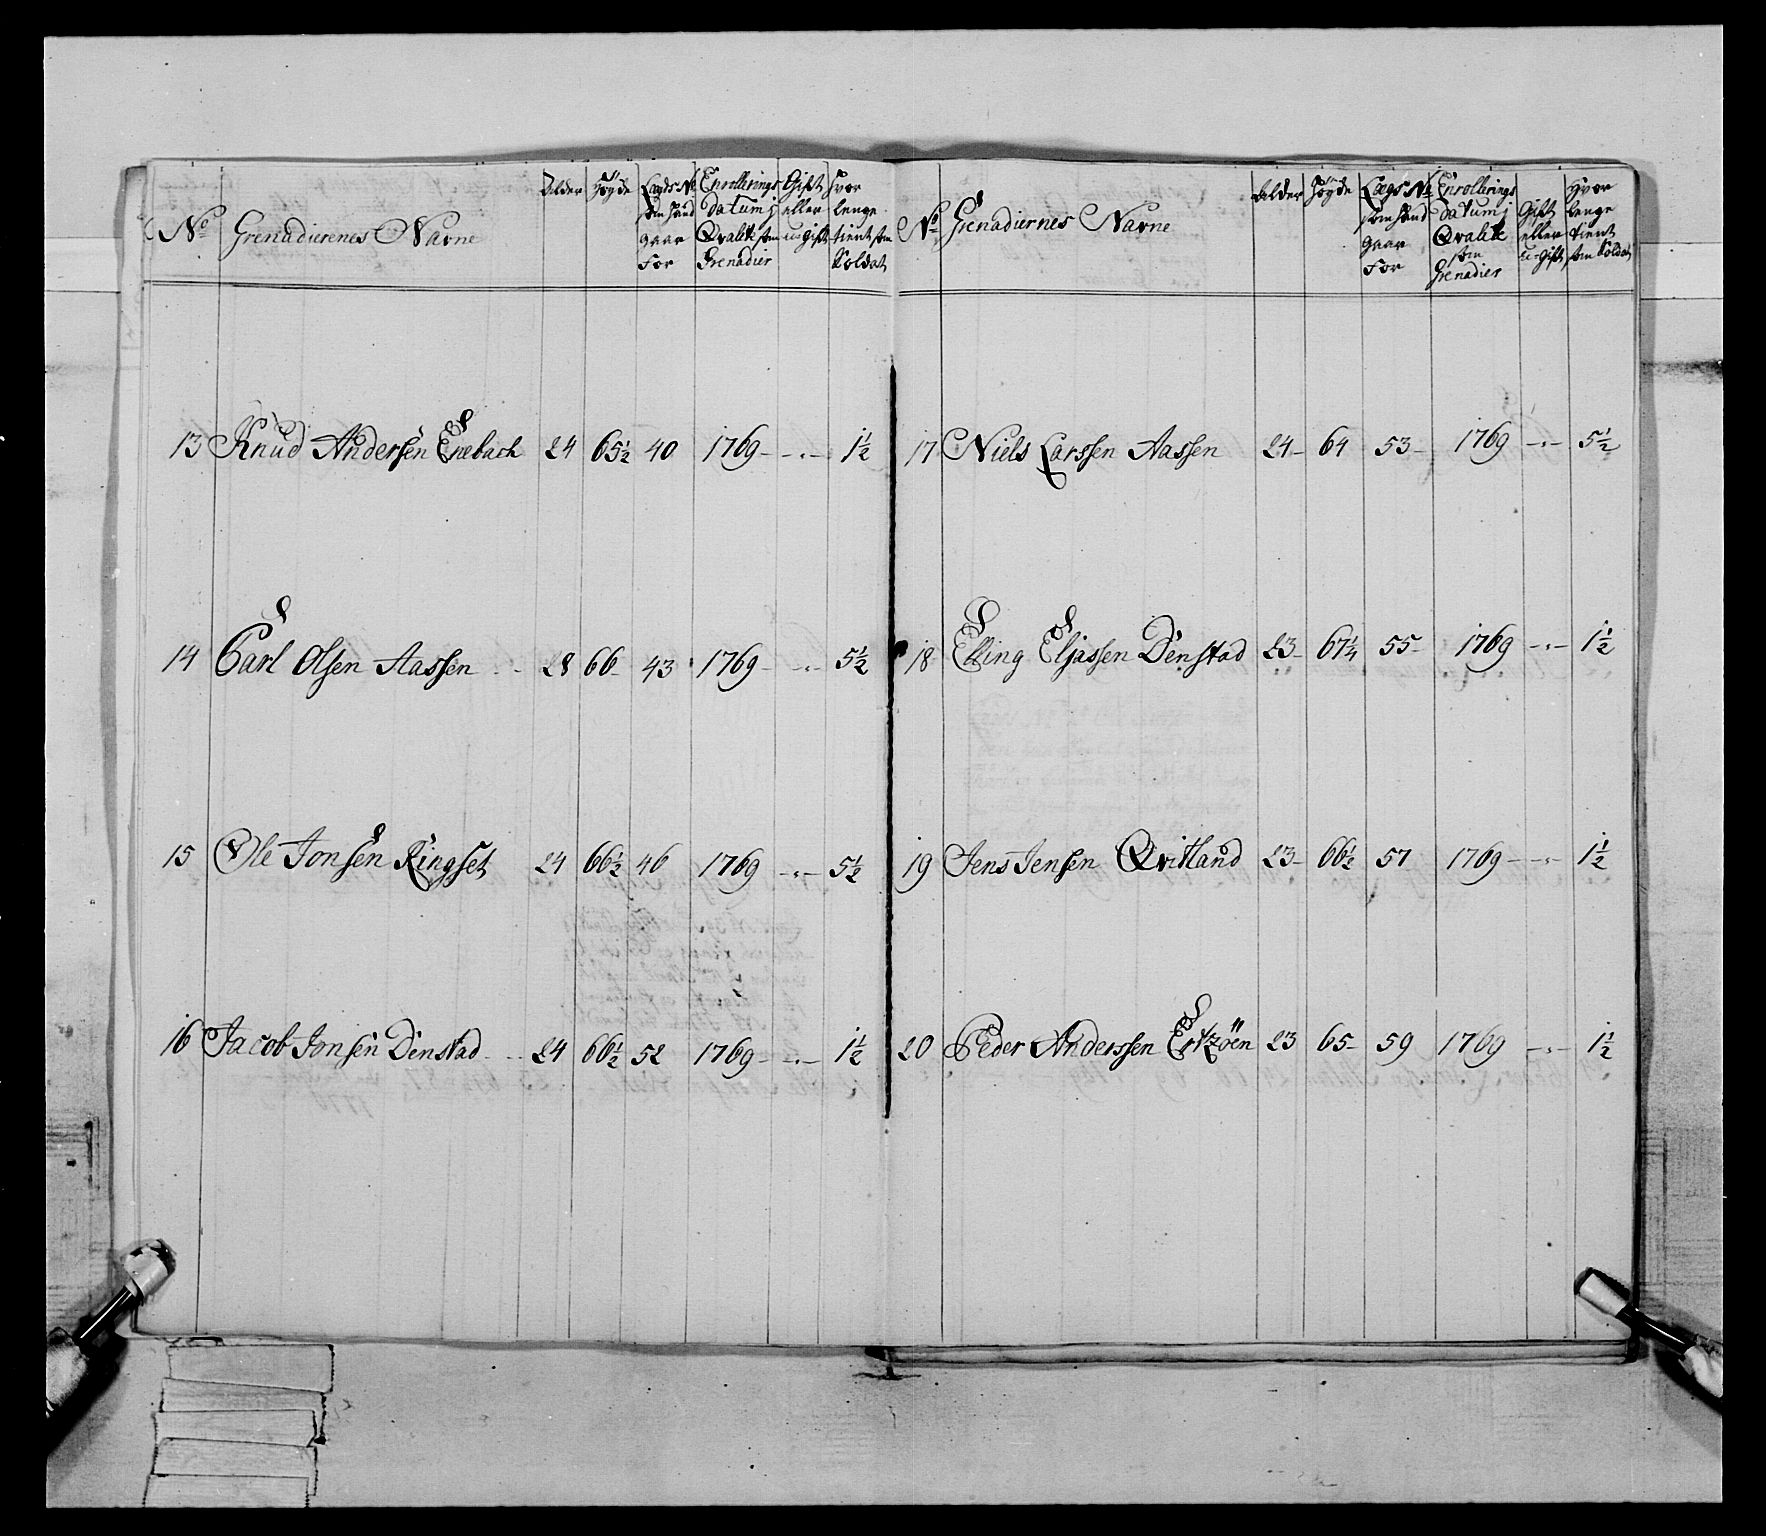 No Grenadierenes Navne Alder Høyde Lægds No som hand gaar for Enrollerings datum j Qvalite som Grenadier Gift eller u-Gift Hvor lenge tient som Soldat
13 Knud Andersen Enebach 24 65½ 40 1769 - „ - 1½
14 Carl Olsen Aassen 28 66 43 1769 - „ - 5½
15 Ole Jonsen Ringset 24 66½ 46 1769 - „ - 5½
16 Jacob Jonsen Denstad 24 66½ 52 1769 - „ - 1½
No Grenadiernes Navne Alder Høyde Lægs No som hand gaar for Enrollerings datum j Qvalite som Grenadier Gift eller U-gift Hvor lenge tient som Soldat
17 Niels Larssen Aassen 24 64 53 1769 - „ - 5½
18 Elling Eljassen Denstad 23 67¼ 55 1769 - „ - 1½
19 Jens Jensen Qvitland 23 66½ 57 1769 - „ - 1½
20 Peder Anderssen Ertzøen 23 65 59 1769 - „ - 1½